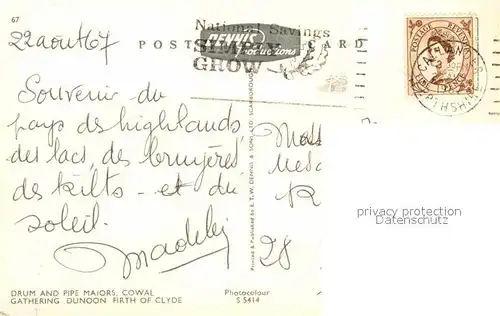 67
22 août 67
POST CARD
DENNIS
Productions
National Savings
SIMPLY
GROW
POSTAGE REVENUE
Souvenir du
pays des highlands
des lacs, des bruyères
des kilts - et du
soleil.
Madelei
28
Printed & Published by E. T. W. DENNIS & SONS LTD., SCARBOROUGH
privacy protection
Datenschutz
DRUM AND PIPE MAJORS, COWAL
GATHERING DUNOON FIRTH OF CLYDE
Photocolour
S 5414